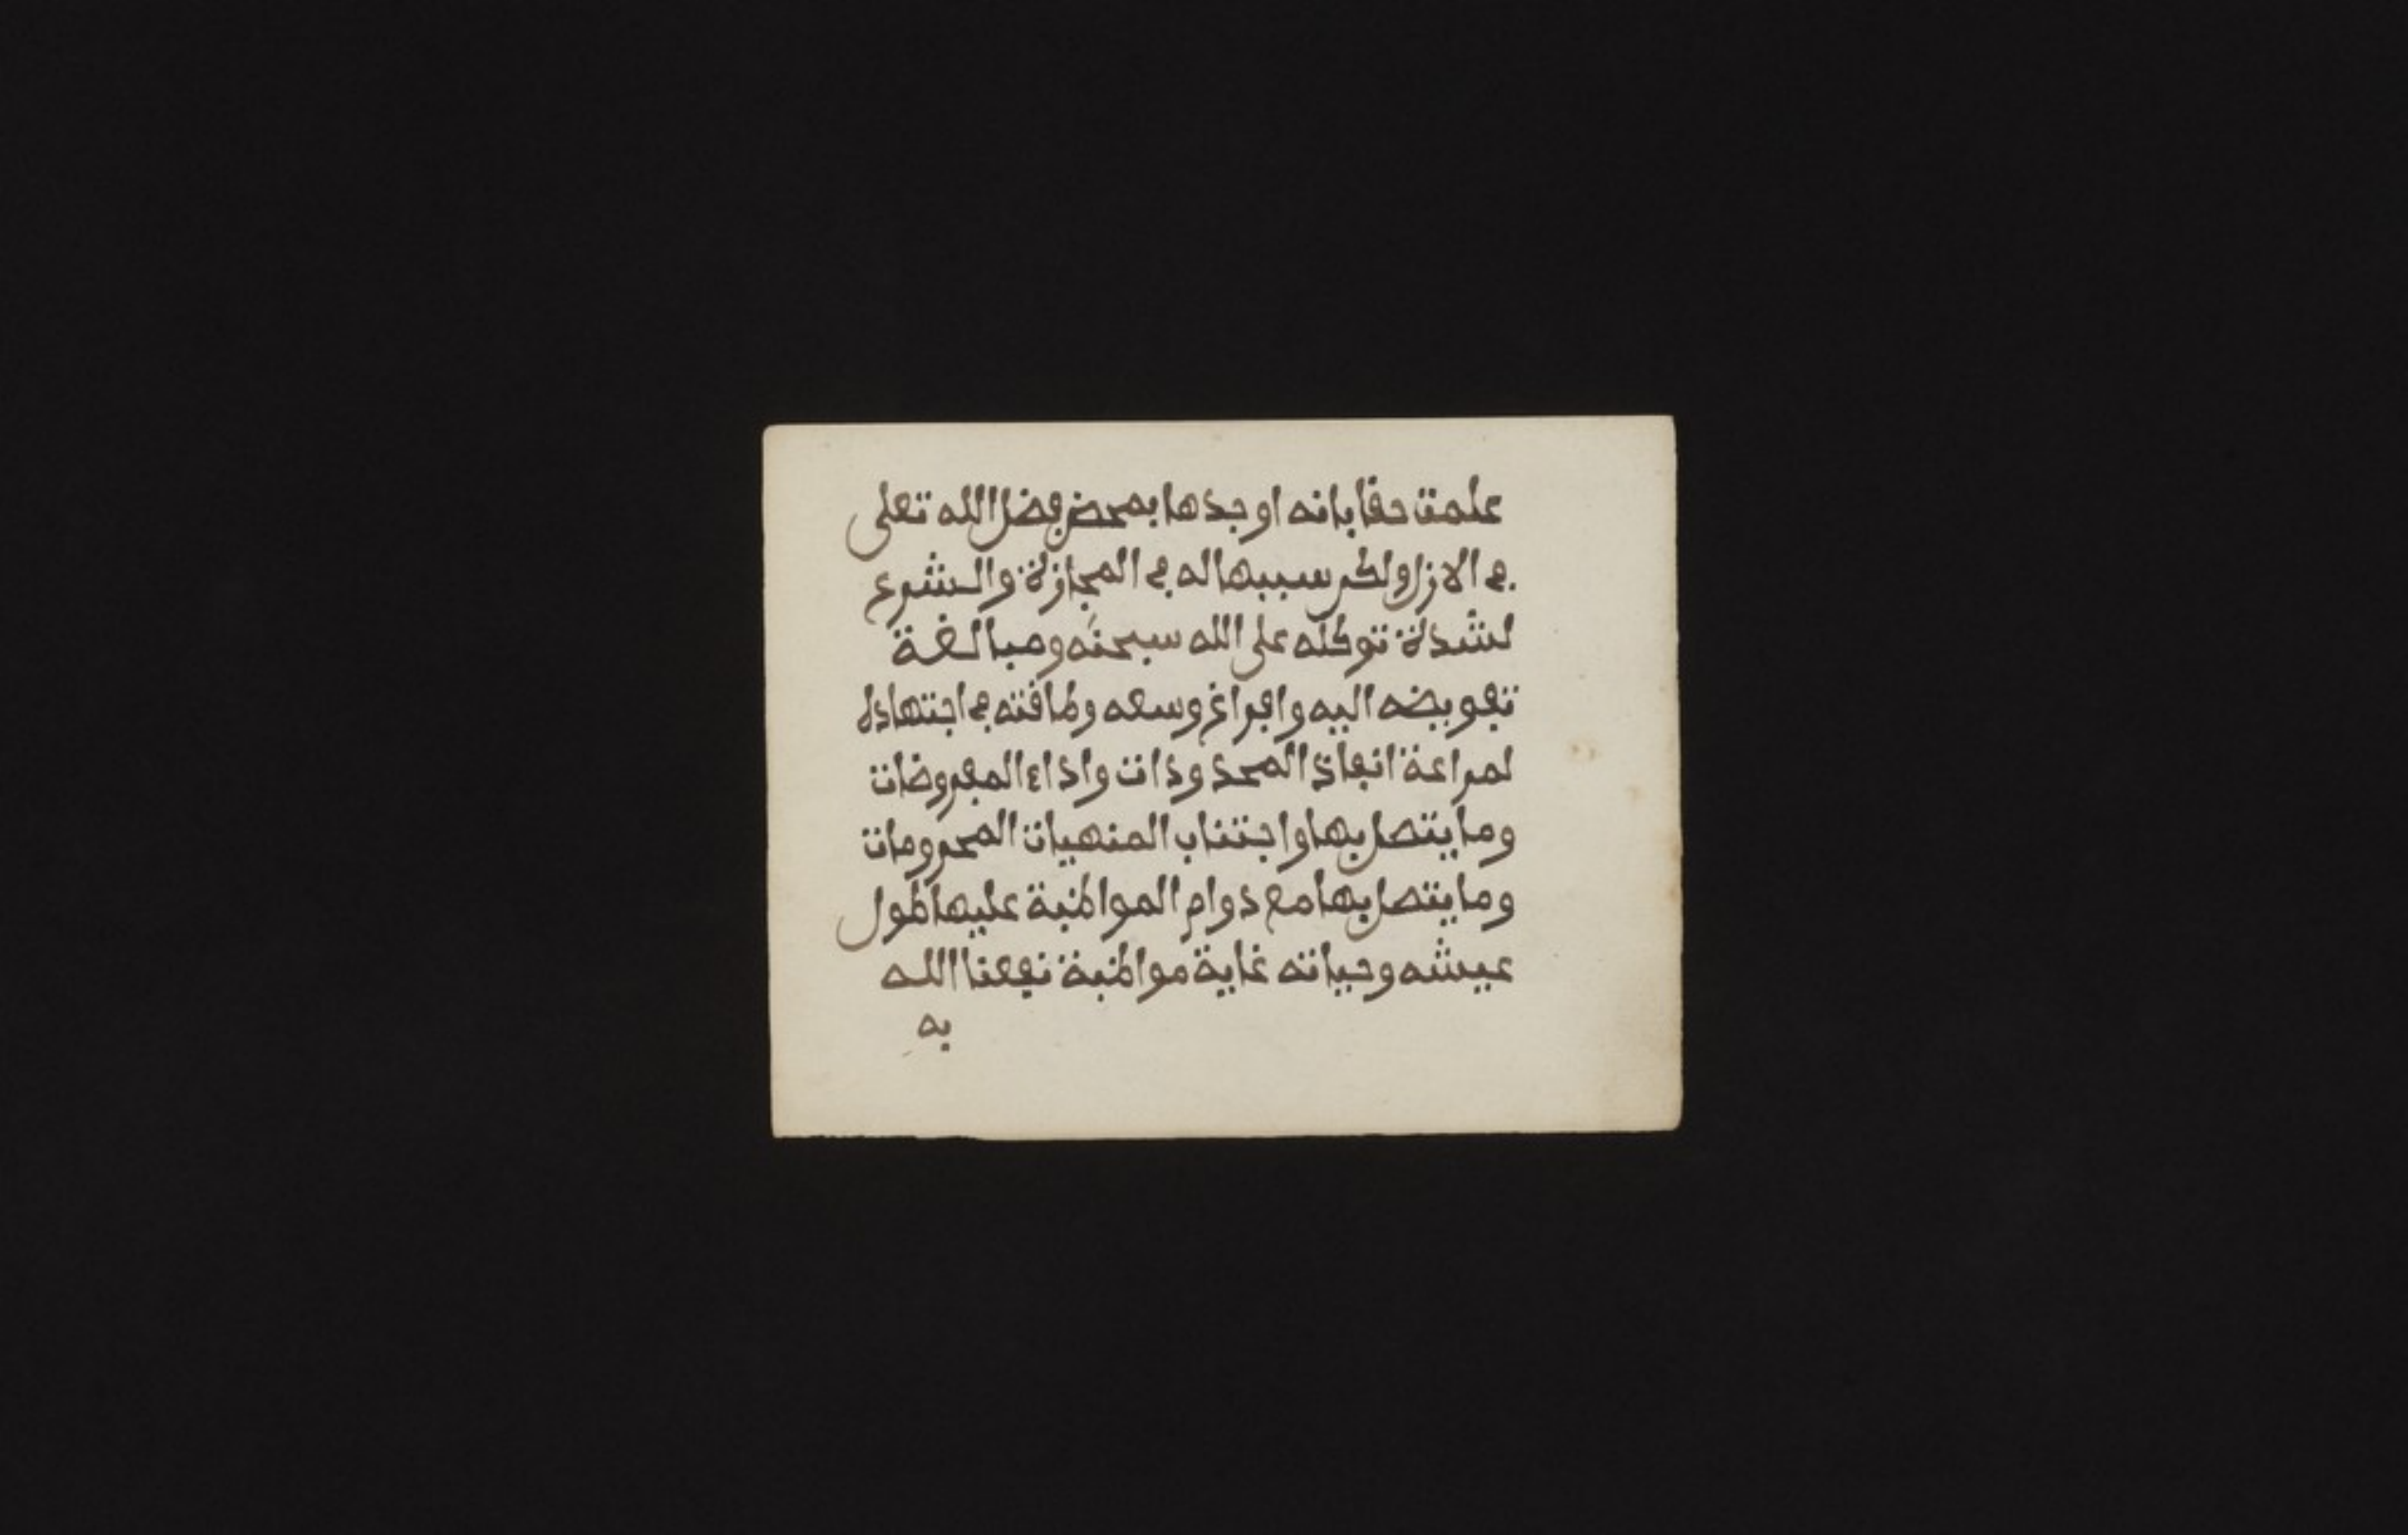 علمت حقا بانه اوجدها بمحض فضل الله تعلى
في الازل ولكن سببها له في المجازة والشرع
لشدة توكله على الله سبحنه ومبالغة
تفويضه اليه وافراغ وسعه وطاقته في اجتهاده
لمراعة انفاذ المحدودات واداء المفروضات
وما يتصل بها واجتناب المنهيات المحرومات
وما يتصل بها مع دوام المواظبة عليها طول
عيشه وحياته غاية مواظبة نفعنا الله
به